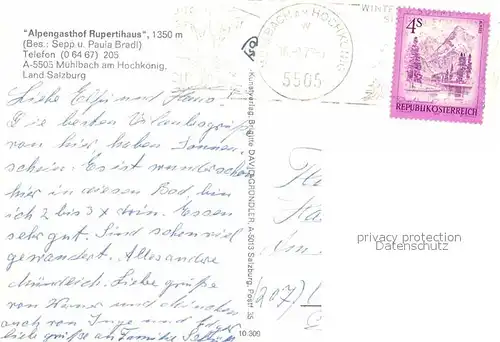 "Alpengasthof Rupertihaus", 1350 m
(Bes.: Sepp u. Paula Bradl)
Telefon (0 64 67) 205
A-5505 Mühlbach am Hochkönig,
Land Salzburg
Liebe Elfi und Hans
Die besten Urlaubsgrüße
von hier, haben Sonnen-
schein. Es ist wunderschön
hier in diesem Bad, bin
ich 2 bis 3 x drin. Essen
sehr gut. Sind schon viel
gewandert. Alles andre
mündlich. Liebe Grüße
von und
auch von Inge und Edgar
liebe Grüße an Familie
Kunstverlag Brigitte DAVID-GRÜNDLER, A-5013 Salzburg, Postf. 35
10 306
MÜHLBACH AM HOCHKÖNIG
5505
WINTER
4S
REPUBLIK ÖSTERREICH
privacy protection
Datenschutz
(207)